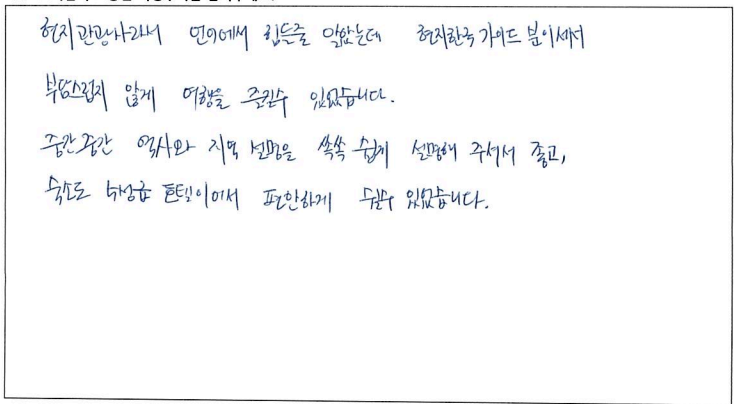 현지관광사라서 언어에서 힘든줄 알았는데 현지한국 가이드 분이셔서
부담스럽지 않게 여행을 즐길수 있었습니다.
중간중간 역사와 지역 설명을 쏙쏙 쉽게 설명해 주셔서 좋고,
숙소도 4성급 호텔이어서 편안하게 쉴수 있었습니다.